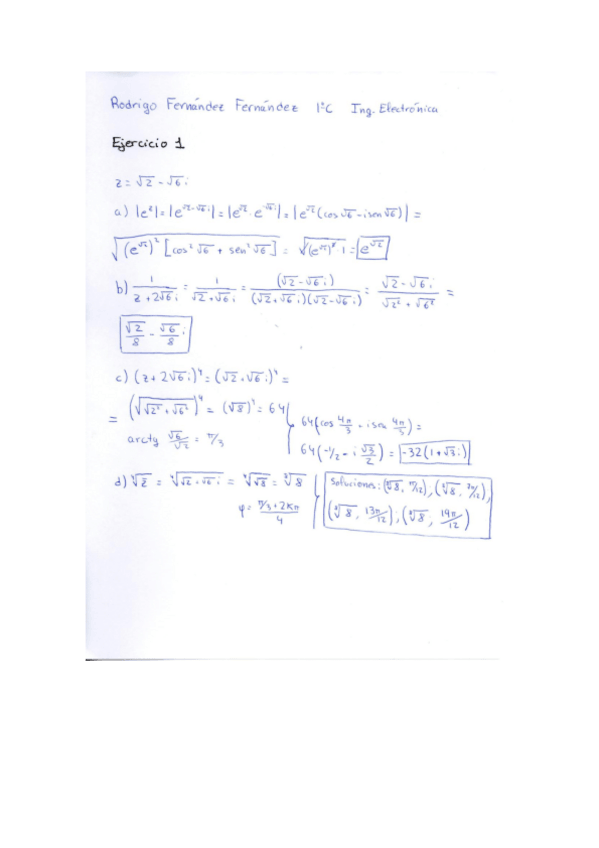 Rodrigo Fernández Fernández 1ºC Ing. Electrónica
Ejercicio 1
z = √2 - √6 i
a) |e^z| = |e^(√2-√6i)| = |e^√2 · e^(-√6i)| = |e^√2 (cos √6 - i sen √6)| =
√((e^√2)² [cos² √6 + sen² √6]) = √((e^√2)² · 1) = e^√2
b) 1/(z + 2√6 i) = 1/(√2 + √6 i) = (√2 - √6 i)/((√2 + √6 i)(√2 - √6 i)) = (√2 - √6 i)/(√2² + √6²) =
√2/8 - √6/8 i
c) (z + 2√6 i)⁴ = (√2 + √6 i)⁴ =
= (√(√2² + √6²))⁴ = (√8)⁴ = 64
64 (cos 4π/3 + i sen 4π/3) =
arctg √6/√2 = π/3
64 (-1/2 - i √3/2) = -32 (1 + √3 i)
d) ⁴√z̄ = ⁴√(√2 + √6 i) = ⁴√√8 = ⁸√8
φ = (π/3 + 2kπ)/4
Soluciones: (⁸√8, π/12), (⁸√8, 7π/12),
(⁸√8, 13π/12); (⁸√8, 19π/12)